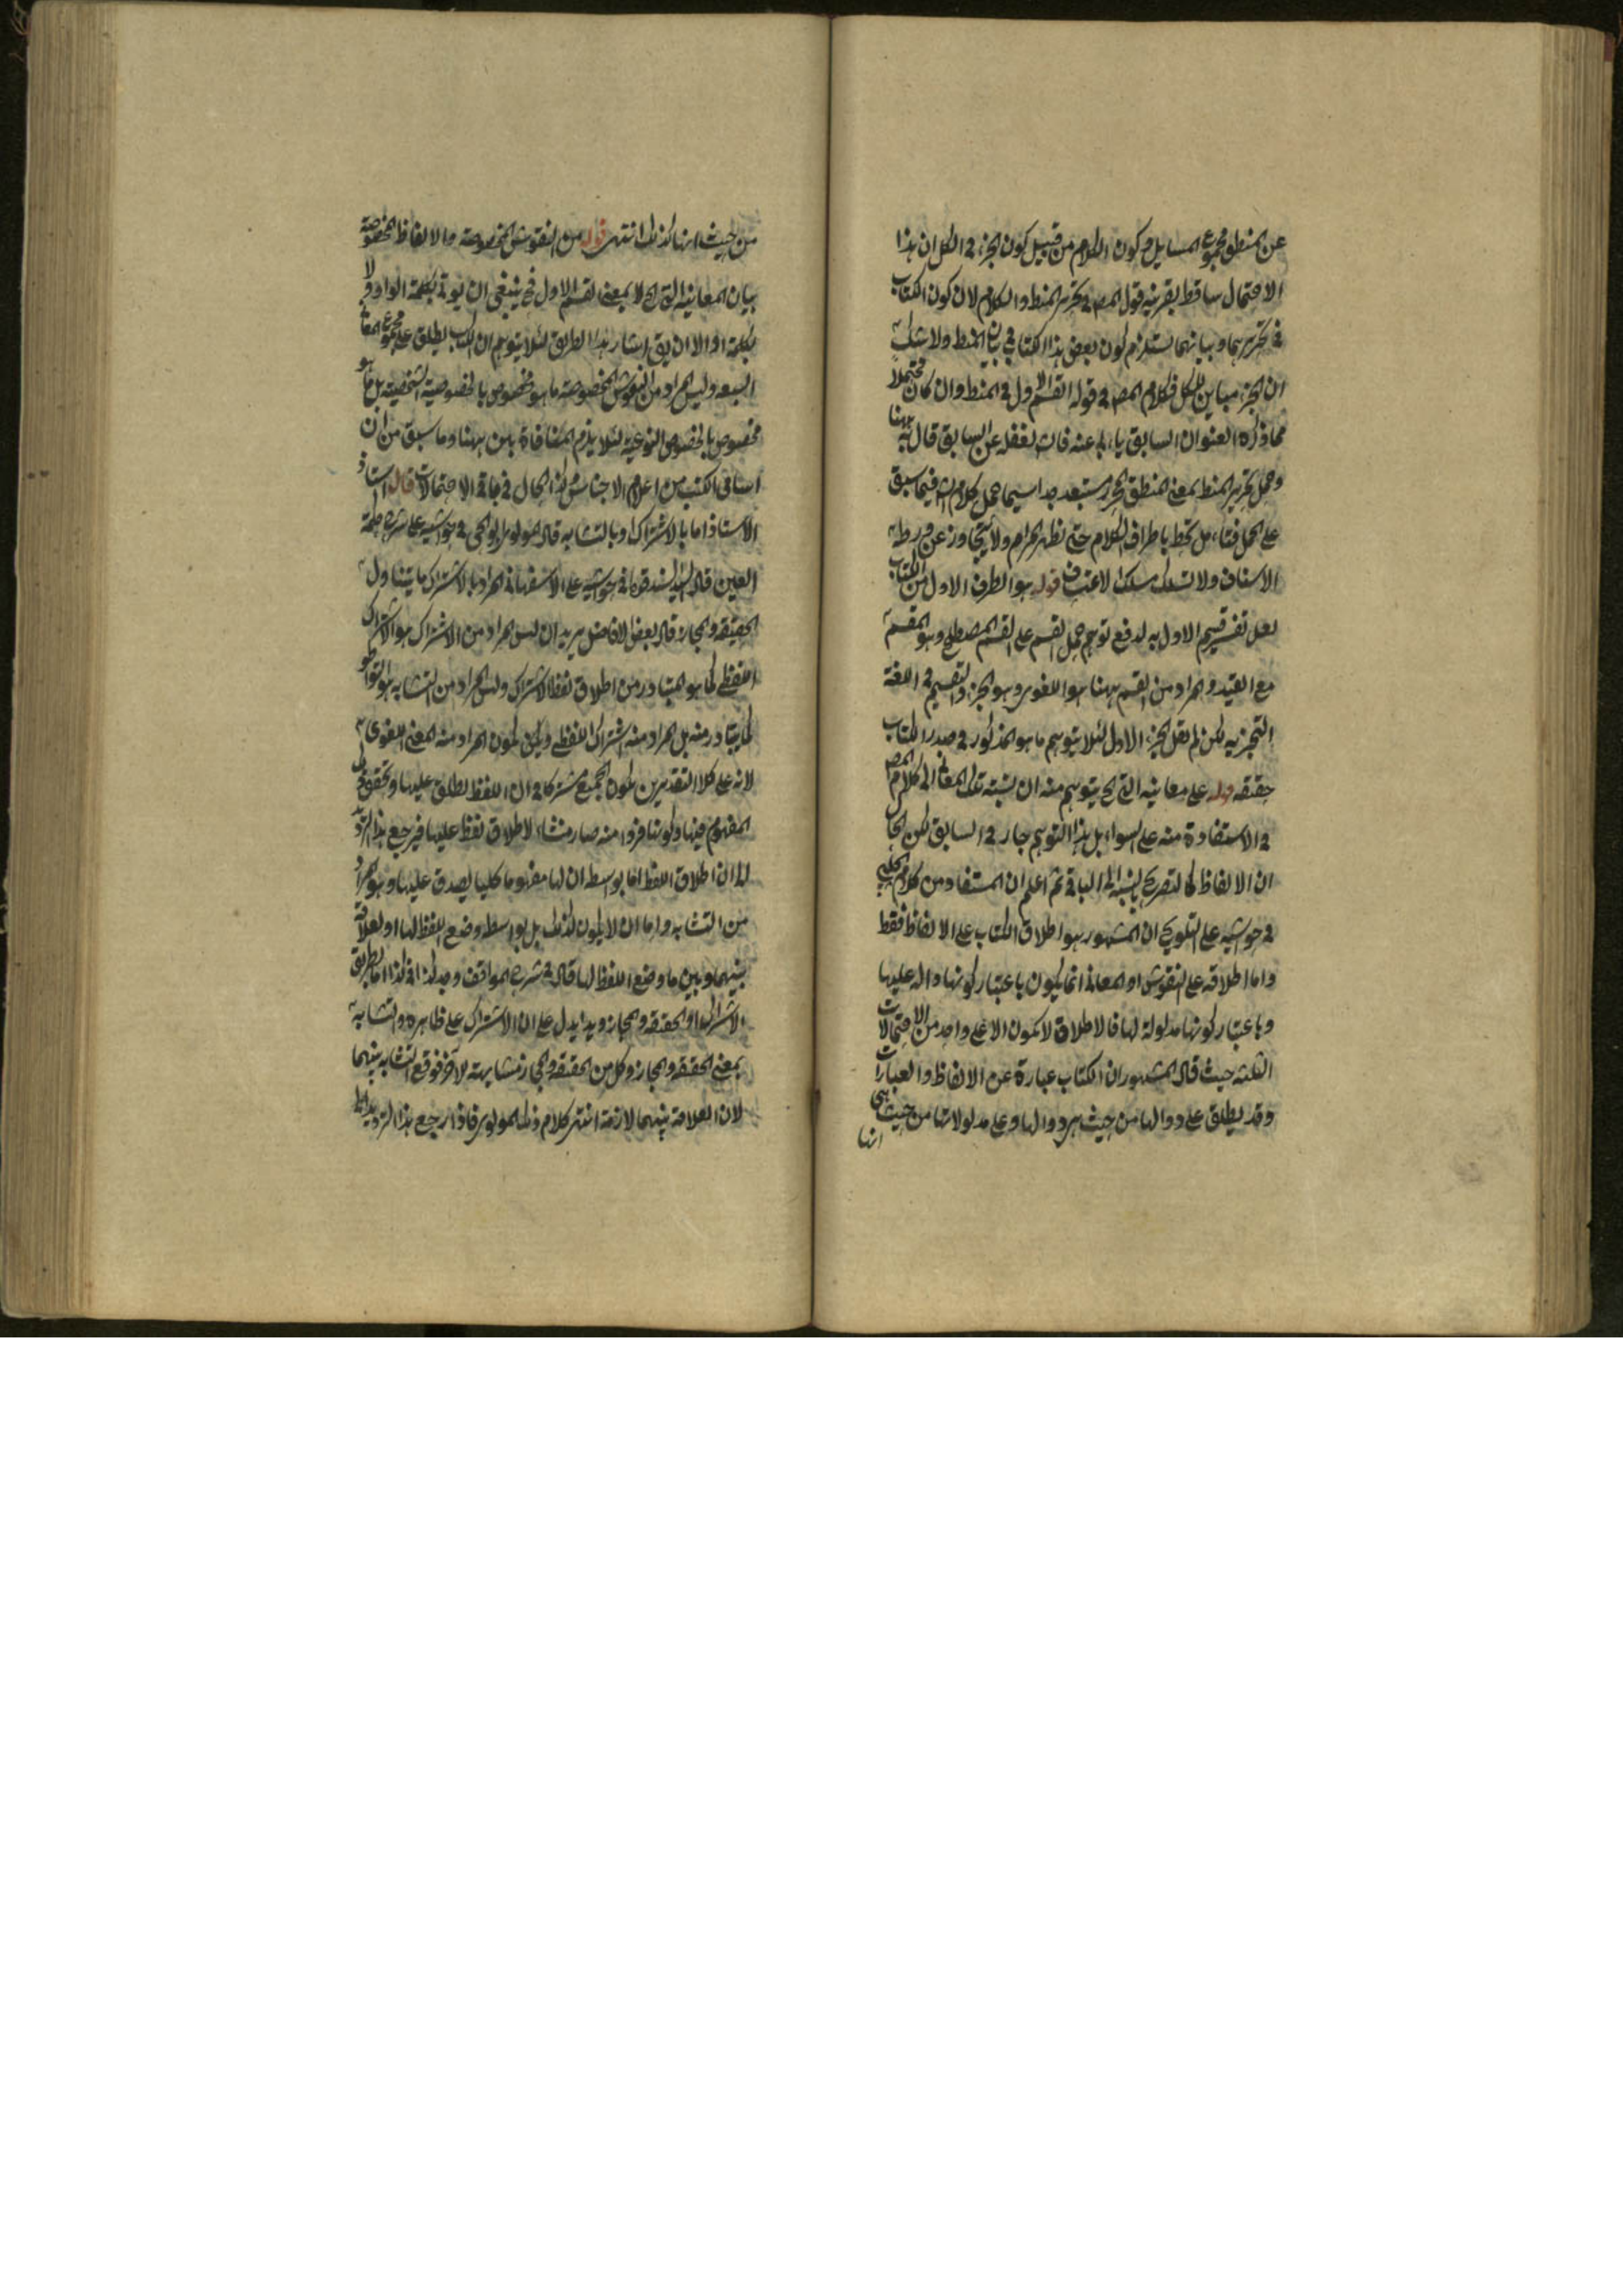 عن المنطق مجموع المسايل وكون الكلام من قبيل كون الجزء في الكل ان هذا
الاحتمال ساقط بقرينة قول المص في تحرير المنط والكلام لان كون الكتاب
في تحريرهما وبيانهما يستلزم كون بعض هذا الكتاب في بيان المنط ولا شك
ان الجزء مباين للكل فكلام المص في قوله القسم الاول في المنط وان كان محتملا
مما ذكره العنوان السابق يابى عنه فالش لغفله عن السابق قال به ههنا
وحمل تحرير المنط بمعنى المنطق المحرر مستبعد جدا سيما حمل كلام الش فيما سبق
على الحمل فتامل تحط باطراف الكلام حتى نظهر المرام ولا تتجاوز عن ورطة
الانصاف ولا تسلك مسلك الاعتساف قوله هو الطرف الاول من الكتاب
لعل تفسير قسم الاول به لدفع توهم حمل القسم على القسم المصطلح وهو المقسم
مع القيد والمراد من القسم ههنا هو اللغوي وهو الجزء والتقسيم في اللغة
التجزيه لكن لم يقل الجزء الاول لئلا يتوهم ما هو المذكور في صدر الكتاب
حقيقه قوله على معانيه التي الخ يتوهم منه ان نسبة تلك المعاني الى كلام المص
في الاستفادة منه على السواء بل هذا التوهم جار في السابق لكن الحال
ان الالفاظ كالتصريح بالنسبة الى الباقي ثم اعلم ان المستفاد من كلام الچلبي
في حواشيه على التلويح ان المشهور هو اطلاق الكتاب على الالفاظ فقط
واما اطلاقه على النقوش او المعاني انما يكون باعتبار كونها دالة عليها
وباعتبار كونها مدلولة لها فالاطلاق لا يكون الا على واحد من الاحتمالات
الثلثه حيث قال المشهور ان الكتاب عبارة عن الالفاظ والعبارات
وقد يطلق على دوالها من حيث هي دوالها وعلى مدلولاتها من حيث هي
انها
من حيث انها كذلك انتهى قوله من النقوش المخصوصة والالفاظ المخصوصة
بيان المعانيه التي الخ لا بمعنى القسم الاول فح ينبغي ان يوتى بكلمة الواو ولا
بكلمة او الا ان يق اشار بهذا الطريق لئلا يتوهم ان الكتاب يطلق على مجموع المعاني
السبعه وليس المراد من النقوش المخصوصة ما هو مخصوص بالخصوصية الشخصية بل ما هو
مخصوص بالخصوص النوعيه لئلا يلزم المنافاة بين ههنا وما سبق من ان
اسامي الكتب من اعلام الاجناس وكذا الحال في باقي الاحتمالات قال استاذ
الاستاذ اما بالاشتراك او بالتشابه قال المولوي ابو الحى في حواشيه على شرح حكمة
العين قال السيد السند قده في حواشيه على الاصفهاني المراد بالاشتراك ما يتناول
الحقيقه والمجاز قال بعض الافاضل يريد ان ليس المراد من الاشتراك هو الاشتراك
اللفظي كما هو المتبادر من اطلاق لفظ الاشتراك وليس المراد من التشابه هو التواطو
كما يتبادر منه بل المراد منه اشتراك اللفظي ويمكن ان يكون المراد منه المعنى اللغوي
لانه على كلا التقديرين يكون الجميع مشتركا في ان اللفظ يطلق عليها وتحقق في
المفهوم فيها وكونها فردا منه صار منشاء لاطلاق لفظ عليها فيرجع هذا الترديد
الى ان اطلاق اللفظ اما بواسطه ان لها مفهوما كليا يصدق عليها وهو المراد
من التشابه واما ان لا يكون كذلك بل بواسطه وضع اللفظ لها او لعلاقة
بينهما وبين ما وضع اللفظ لها قال في شرح المواقف وجد كذا في كذا اما بطريق
الاشتراك او الحقيقه والمجاز وهذا يدل على ان الاشتراك على ظاهره والتشابه
بمعنى الحقيقه والمجاز وكل من الحقيقه والمجاز متشابهة لاخر فوقع التشابه بينهما
لان العلاقة بينهما لازمة انتهى كلام ذلك المولوي فاذا رجع هذا الترديد الى